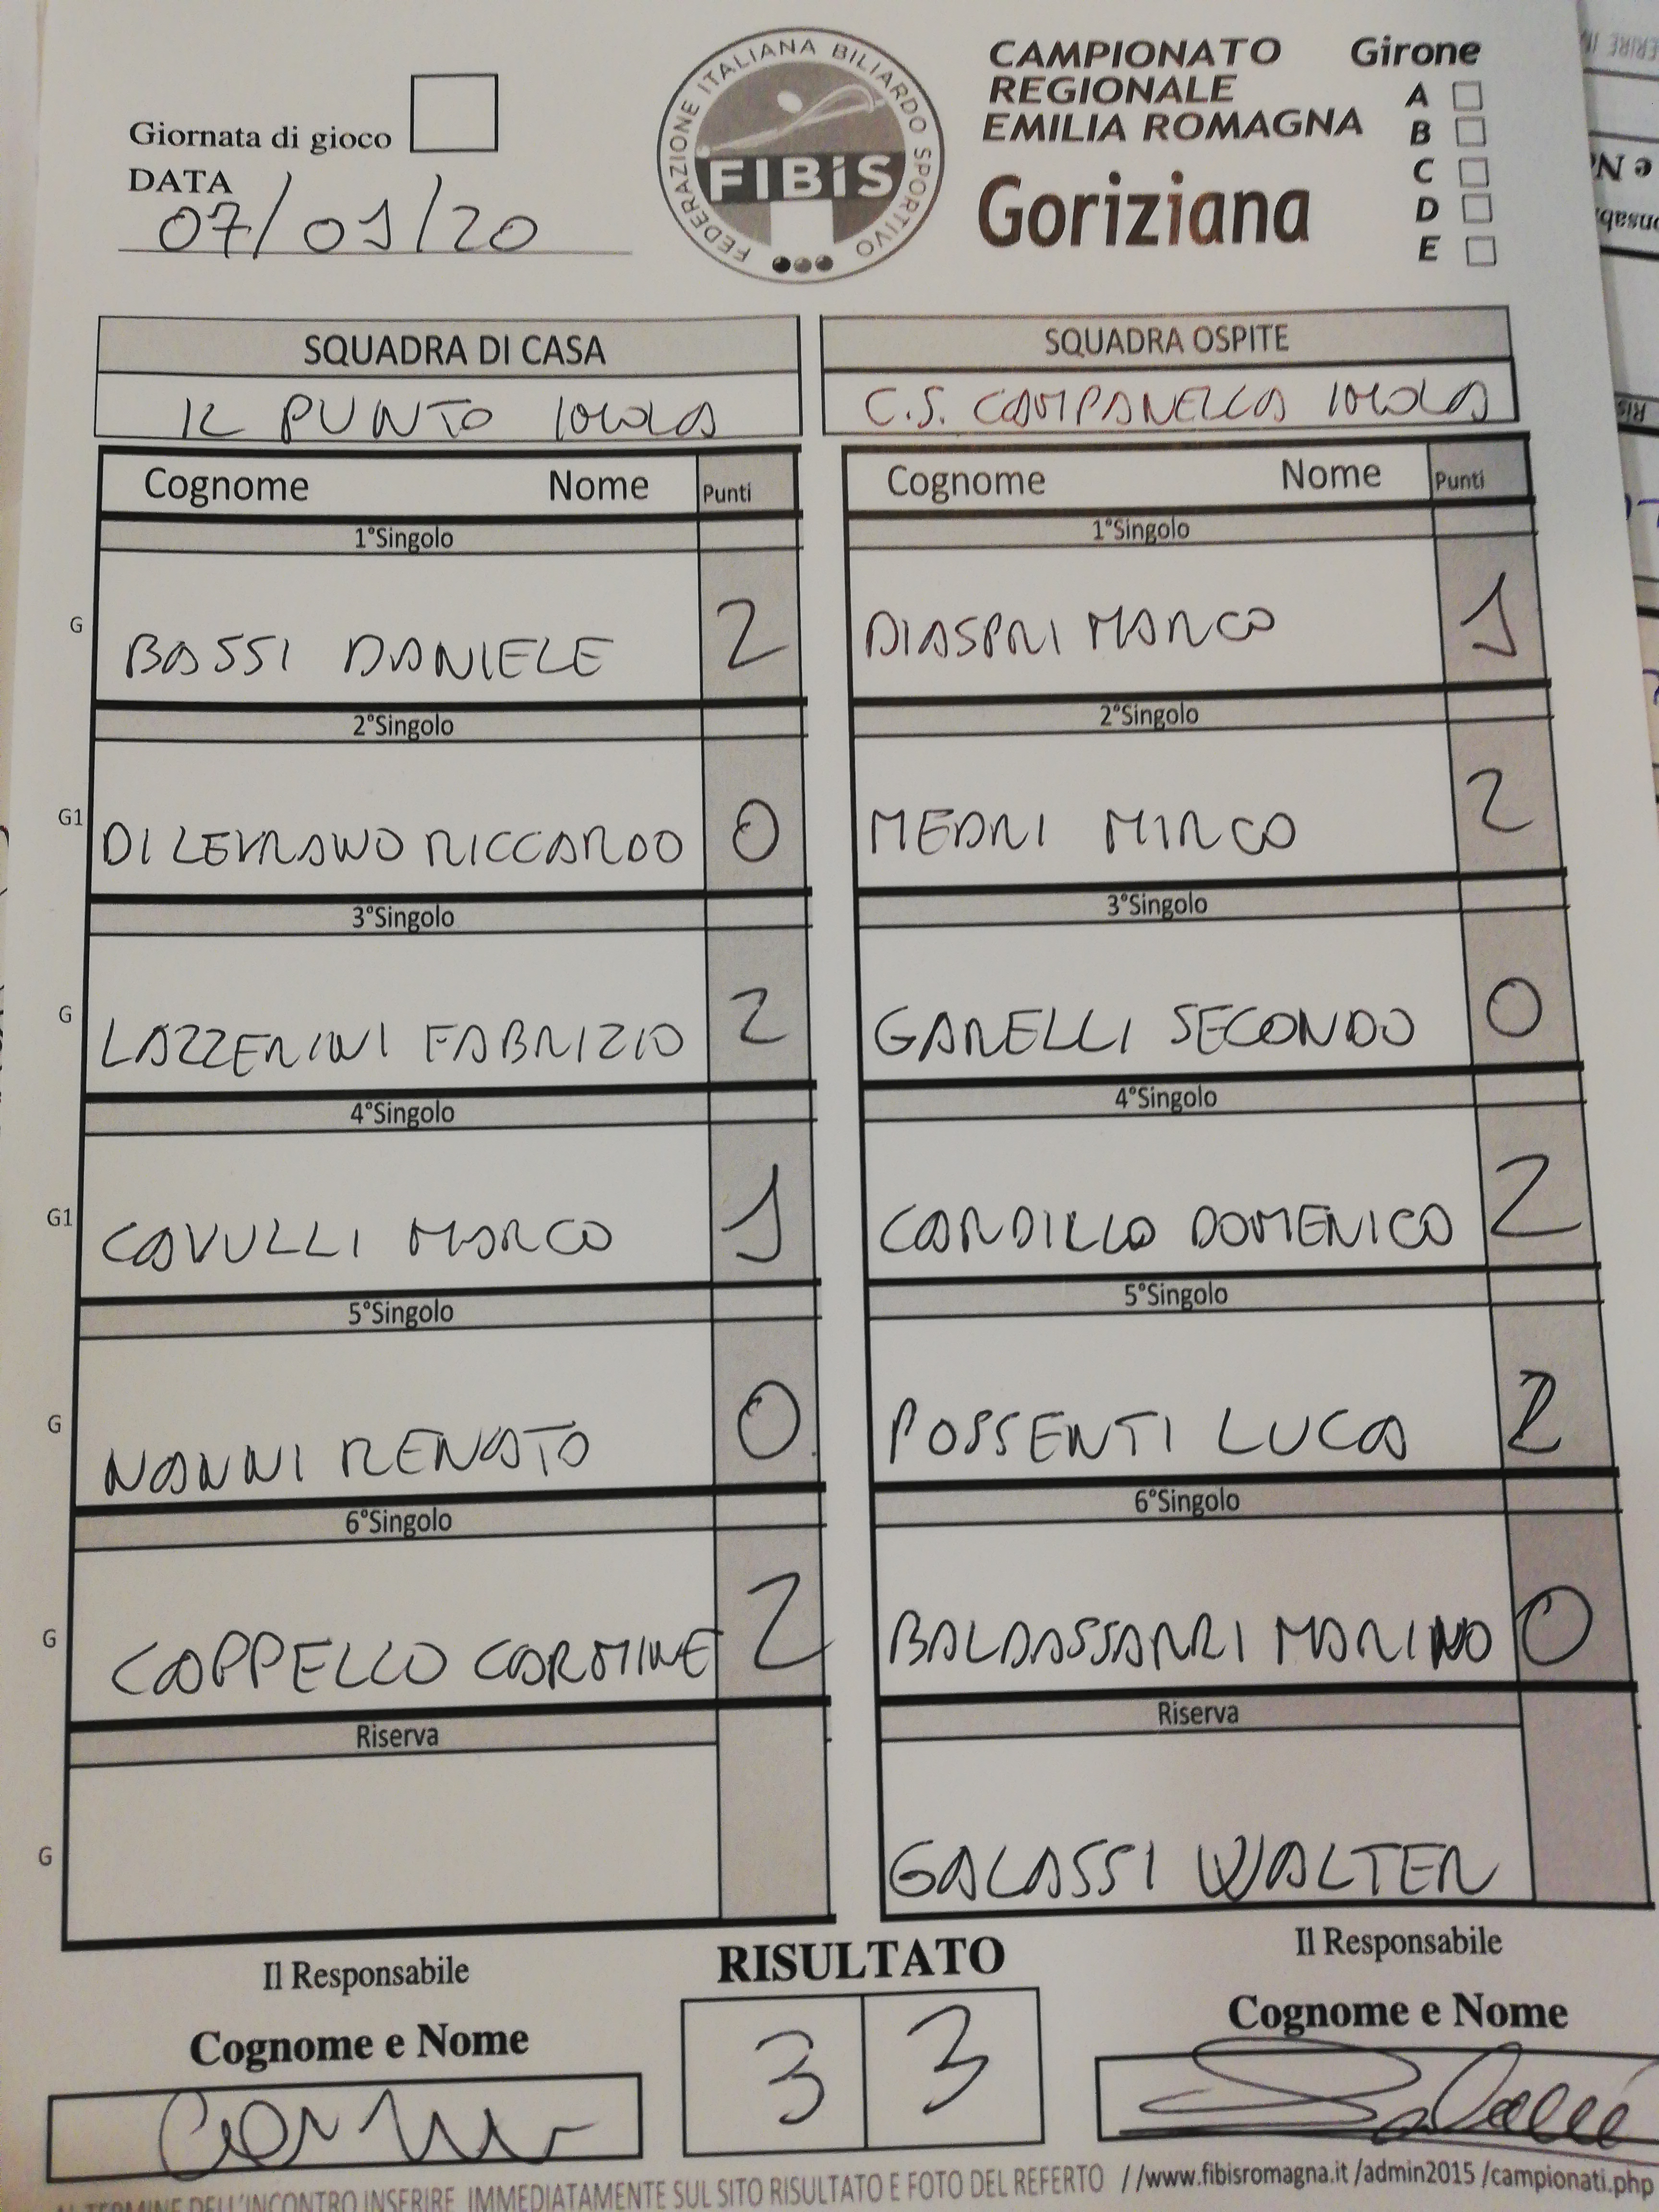 Giornata di gioco
DATA
07/01/20
FEDERAZIONE ITALIANA BILIARDO SPORTIVO
FIBiS
CAMPIONATO
REGIONALE
EMILIA ROMAGNA
Goriziana
Girone
A
B
C
D
E
SQUADRA DI CASA
IL PUNTO IMOLA
SQUADRA OSPITE
C.S. CAMPANELLA IMOLA
Cognome Nome Punti
1°Singolo
G BASSI DANIELE 2
2°Singolo
G1 DI LEVRANO RICCARDO 0
3°Singolo
G LAZZERINI FABRIZIO 2
4°Singolo
G1 CAVULLI MARCO 1
5°Singolo
G NANNI RENATO 0
6°Singolo
G CAPPELLO CARMINE 2
Riserva
G
Cognome Nome Punti
1°Singolo
DIASPRI MARCO 1
2°Singolo
MEDRI MIRCO 2
3°Singolo
GARELLI SECONDO 0
4°Singolo
CARDILLO DOMENICO 2
5°Singolo
POSSENTI LUCA 2
6°Singolo
BALDASSARRI MARINO 0
Riserva
GALASSI WALTER
Il Responsabile
Cognome e Nome
RISULTATO
3 3
Il Responsabile
Cognome e Nome
AL TERMINE DELL'INCONTRO INSERIRE IMMEDIATAMENTE SUL SITO RISULTATO E FOTO DEL REFERTO //www.fibisromagna.it /admin2015 /campionati.php